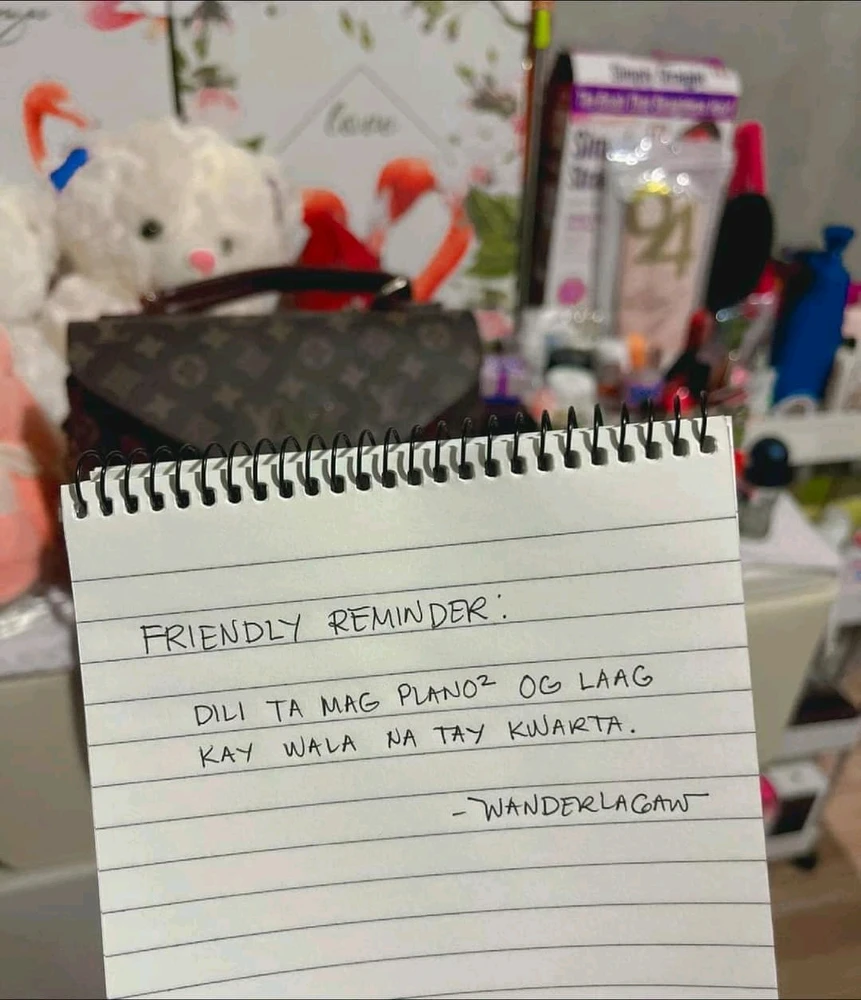 love
94
FRIENDLY REMINDER:
DILI TA MAG PLANO² OG LAAG
KAY WALA NA TAY KWARTA.
-WANDERLAGAW